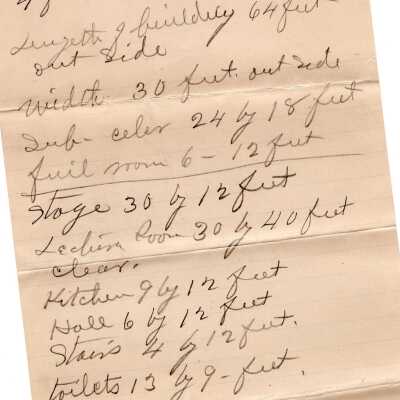 Length of building 64 feet
out side
width 30 feet. out side
Sub-celer 24 by 18 feet
fuil room 6 - 12 feet
Stage 30 by 12 feet
Lecture Room 30 by 40 feet
clear.
Kitchen 9 by 12 feet
Hall 6 by 12 feet
Stairs 4 by 12 feet.
toilets 13 by 9 - feet.